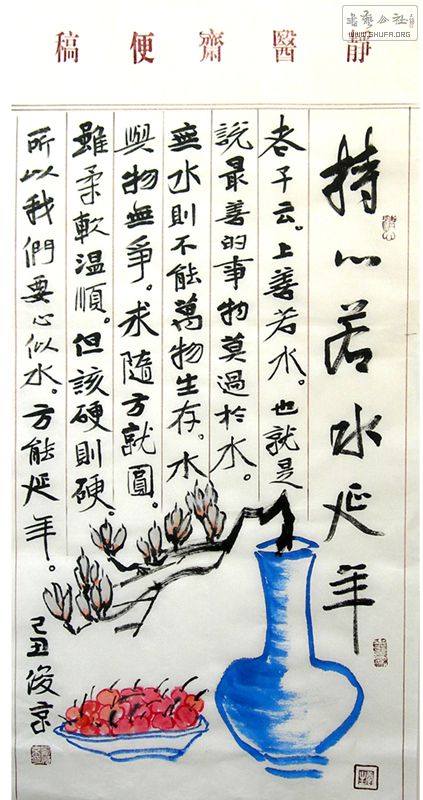 書藝公社
WWW.SHUFA.ORG
靜醫齋便稿
持心若水延年
老子云。上善若水。也就是
說最善的事物莫過於水。
無水則不能萬物生存。水
與物無爭。求隨方就圓。
雖柔軟溫順。但該硬則硬。
所以我們要心似水。方能延年。
己丑俊京